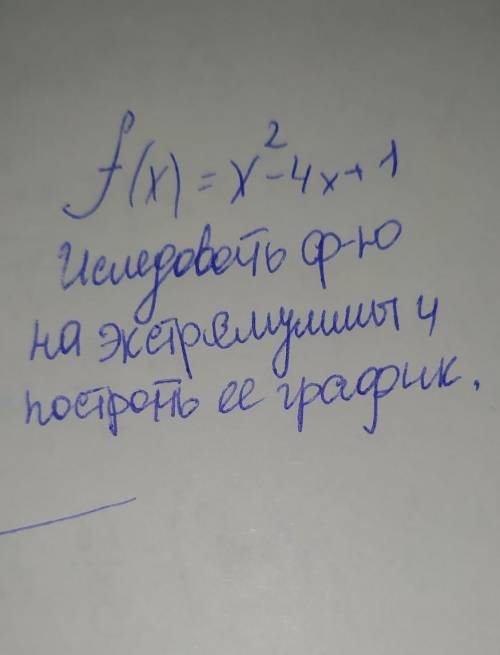 f(x) = x²-4x+1
Иследовать ф-ю
на экстремуммы и
построть ее график.